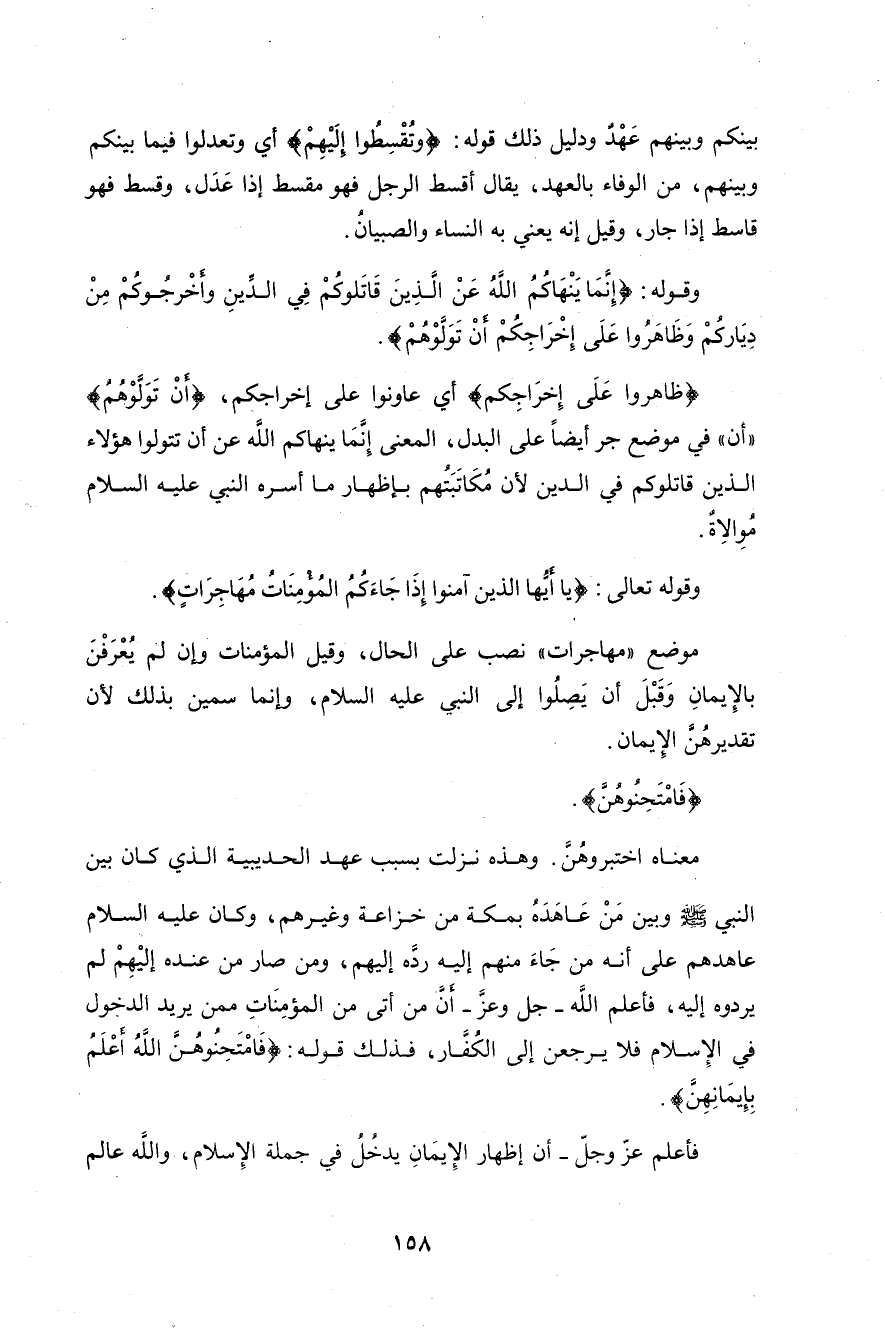 بينكم وبينهم عَهْدٌ ودليل ذلك قوله: ﴿وتُقْسِطُوا إِلَيْهِمْ﴾ أي وتعدلوا فيما بينكم
وبينهم، من الوفاء بالعهد، يقال أقسط الرجل فهو مقسط إذا عَدَل، وقسط فهو
قاسط إذا جار، وقيل إنه يعني به النساء والصبيانُ.
وقوله: ﴿إِنَّمَا يَنْهَاكُمُ اللَّهُ عَنْ الَّذِينَ قَاتَلوكُمْ فِي الدِّينِ وأَخْرجُوكُمْ مِنْ
دِيَاركُمْ وَظَاهَرُوا عَلَى إخْرَاجِكُمْ أَنْ تَوَلَّوْهُمْ﴾.
﴿ظاهروا عَلَى إخرَاجِكم﴾ أي عاونوا على إخراجكم، ﴿أَنْ تَوَلَّوْهُمُ﴾
«أن» في موضع جر أيضاً على البدل، المعنى إنَّمَا ينهاكم اللَّه عن أن تتولوا هؤلاء
الذين قاتلوكم في الدين لأن مُكَاتَبَتُهم بإظهار ما أسره النبي عليه السلام
مُوالاةٌ.
وقوله تعالى: ﴿يا أَيُّها الذين آمنوا إِذَا جَاءَكُمُ المُؤْمِنَاتُ مُهَاجِرَاتٍ﴾.
موضع «مهاجرات» نصب على الحال، وقيل المؤمنات وإن لم يُعْرَفْنَ
بالإيمانِ وَقَبْلَ أن يَصِلُوا إلى النبي عليه السلام، وإنما سمين بذلك لأن
تقديرهُنَّ الإيمان.
﴿فَامْتَحِنُوهُنَّ﴾.
معناه اختبروهُنَّ. وهذه نزلت بسبب عهد الحديبية الذي كان بين
النبي ﷺ وبين مَنْ عَاهَدَهُ بمكة من خزاعة وغيرهم، وكان عليه السلام
عاهدهم على أنه من جَاءَ منهم إليه ردَّه إليهم، ومن صار من عنده إليْهِمْ لم
يردوه إليه، فأعلم اللَّه ـ جل وعزَّ ـ أَنَّ من أتى من المؤمِنَاتِ ممن يريد الدخول
في الإسلام فلا يرجعن إلى الكُفَّار، فذلك قوله: ﴿فَامْتَحِنُوهُنَّ اللَّهُ أَعْلَمُ
بِإيمَانِهِنَّ﴾.
فأعلم عزّ وجلّ ـ أن إظهار الإيمَانِ يدخُلُ في جملة الإسلام، واللَّه عالم
١٥٨